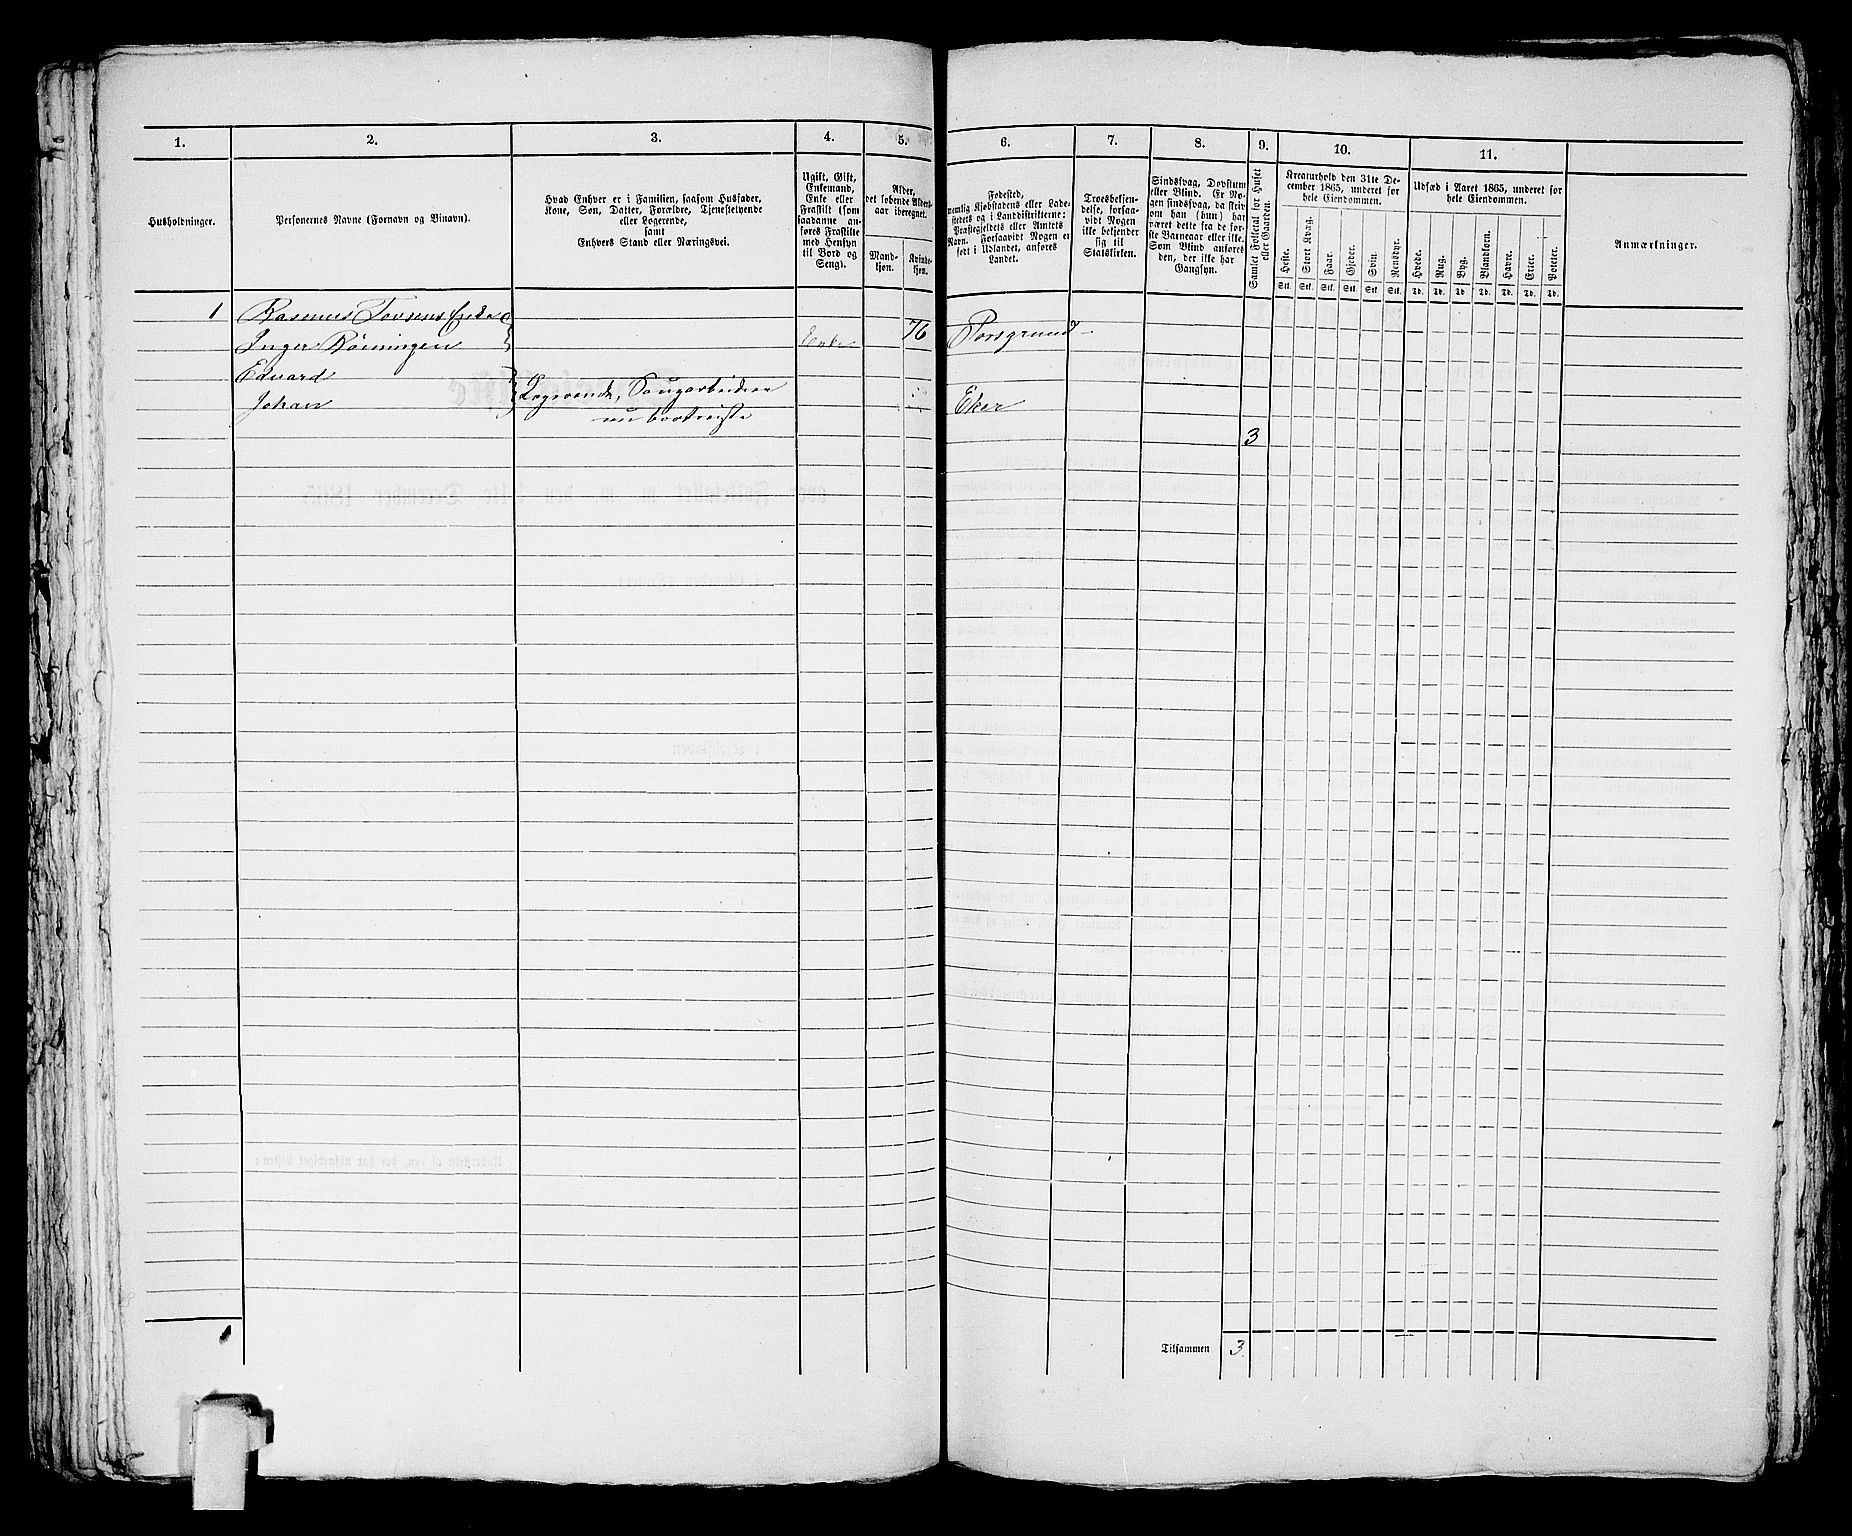 1. 2. 3. 4. 5. 6. 7. 8. 9. 10. 11.
Husholdninger.
Personernes Navne (Fornavn og Binavn).
Hvad Enhver er i Familien, saasom Husfader,
Kone, Søn, Datter, Forældre, Tjenestetyende
eller Logerende,
samt
Enhvers Stand eller Næringsvei.
Ugift, Gift,
Enkemand,
Enke eller
Fraskilt (som
saadanne an-
føres Fraskilte
med Hensyn
til Bord og
Seng).
Alder,
det løbende Alders-
aar iberegnet.
Mand-
kjøn.
Kvinde-
kjøn.
Fødested,
nemlig Kjøbstadens eller Lade-
stedets og i Landdistrikterne:
Præstegjeldets eller Amtets
Navn. Forsaavidt Nogen er
født i Udlandet, anføres
Landet.
Troesbekjen-
delse, forsaa-
vidt Nogen
ikke bekjender
sig til
Statskirken.
Sindssvag, Døvstum
eller Blind. (Er No-
gen sindssvag, da skriv
om han (hun) har
været dette fra de før-
ste Barneaar eller ikke.
Som Blind anføres
den, der ikke har
Gangsyn.
Samlet Folketal for Huset
eller Gaarden.
Kreaturhold den 31te De-
cember 1865, underet for
hele Eiendommen.
Heste. Stort Kvæg. Faar. Gjeder. Svin. Rensdyr.
Stk. Stk. Stk. Stk. Stk. Stk.
Udsæd i Aaret 1865, underet for
hele Eiendommen.
Hvede. Rug. Byg. Blandkorn. Havre. Erter. Poteter.
Td. Td. Td. Td. Td. Td. Td.
Anmærkninger.
1 Rasmus Tovsens Enke
Inger Rönningen Enke 76 Porsgrund
Edvard
Johan Logerende, Saugarbeidere Eker
nu bortreiste
3
1
Tilsammen 3